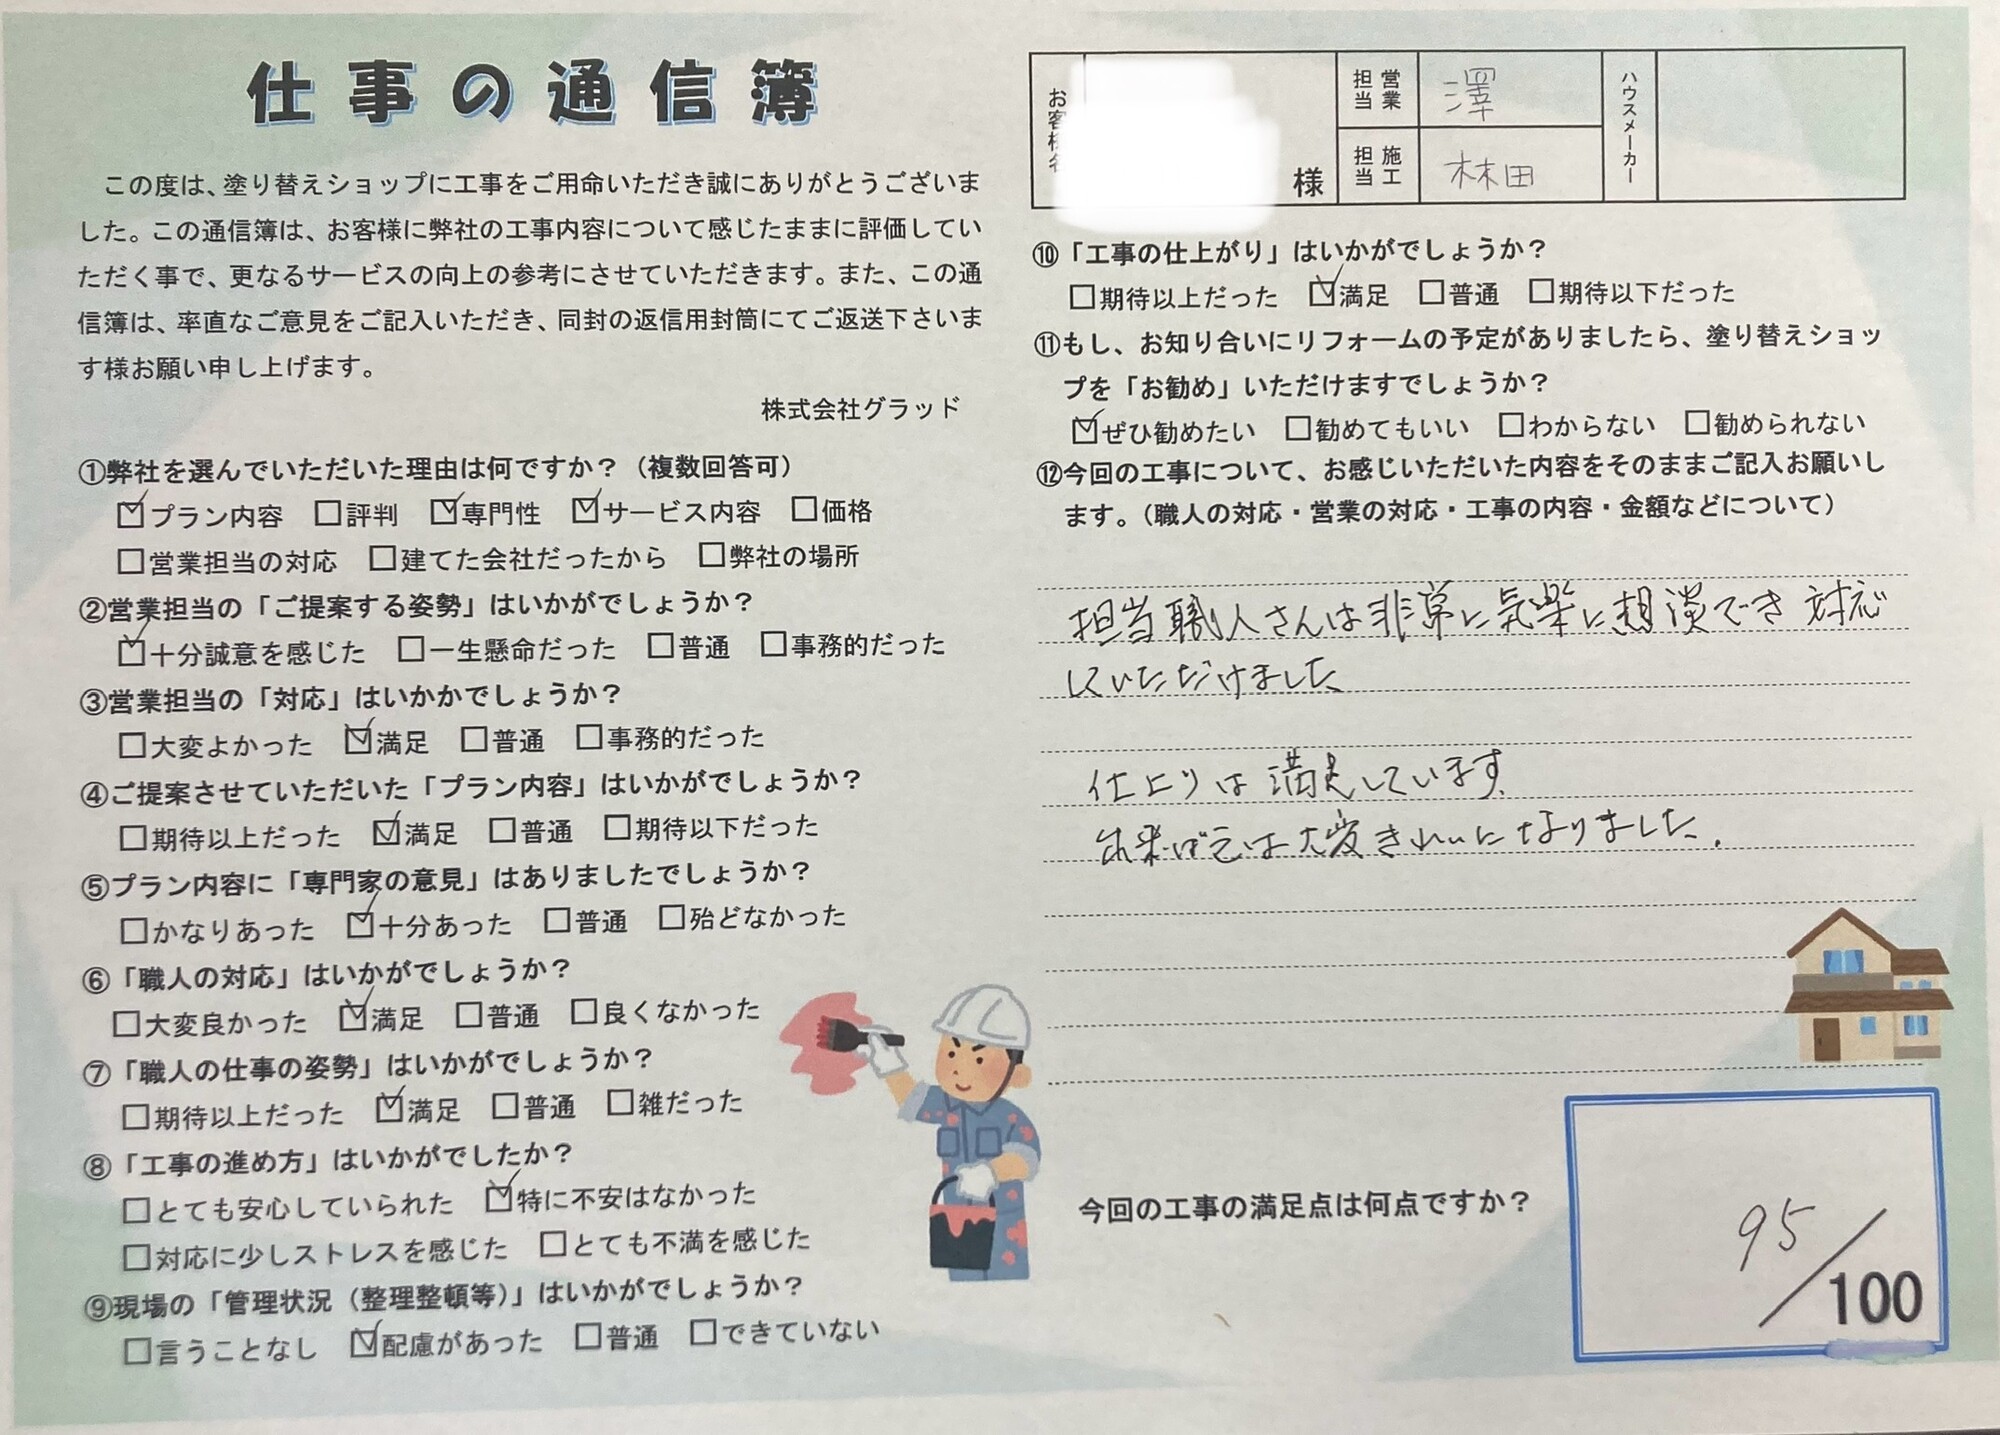 仕事の通信簿
この度は、塗り替えショップに工事をご用命いただき誠にありがとうございま
した。この通信簿は、お客様に弊社の工事内容について感じたままに評価してい
ただく事で、更なるサービスの向上の参考にさせていただきます。また、この通
信簿は、率直なご意見をご記入いただき、同封の返信用封筒にてご返送下さいま
す様お願い申し上げます。
株式会社グラッド
①弊社を選んでいただいた理由は何ですか？（複数回答可）
☑プラン内容 □評判 ☑専門性 ☑サービス内容 □価格
□営業担当の対応 □建てた会社だったから □弊社の場所
②営業担当の「ご提案する姿勢」はいかがでしょうか？
☑十分誠意を感じた □一生懸命だった □普通 □事務的だった
③営業担当の「対応」はいかかでしょうか？
□大変よかった ☑満足 □普通 □事務的だった
④ご提案させていただいた「プラン内容」はいかがでしょうか？
□期待以上だった ☑満足 □普通 □期待以下だった
⑤プラン内容に「専門家の意見」はありましたでしょうか？
□かなりあった ☑十分あった □普通 □殆どなかった
⑥「職人の対応」はいかがでしょうか？
□大変良かった ☑満足 □普通 □良くなかった
⑦「職人の仕事の姿勢」はいかがでしょうか？
□期待以上だった ☑満足 □普通 □雑だった
⑧「工事の進め方」はいかがでしたか？
□とても安心していられた ☑特に不安はなかった
□対応に少しストレスを感じた □とても不満を感じた
⑨現場の「管理状況（整理整頓等）」はいかがでしょうか？
□言うことなし ☑配慮があった □普通 □できていない
お客様名 様
営業担当 澤
施工担当 林田
ハウスメーカー
⑩「工事の仕上がり」はいかがでしょうか？
□期待以上だった ☑満足 □普通 □期待以下だった
⑪もし、お知り合いにリフォームの予定がありましたら、塗り替えショッ
プを「お勧め」いただけますでしょうか？
☑ぜひ勧めたい □勧めてもいい □わからない □勧められない
⑫今回の工事について、お感じいただいた内容をそのままご記入お願いし
ます。（職人の対応・営業の対応・工事の内容・金額などについて）
担当職人さんは非常に気楽に相談でき対応
していただけました
仕上りは満足しています。
出来ばえは大変きれいになりました。
今回の工事の満足点は何点ですか？
95/100